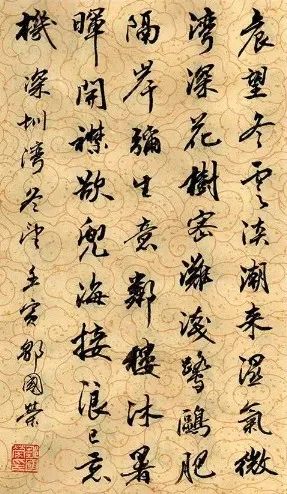 遠望冬雲淡潮来濕氣微
湾深花樹密灘淺鷺鷗肥
隔岸彌生意鄰樓沐暑
暉開襟欲兜海接浪已忘
機深圳湾冬望壬寅鄒國榮